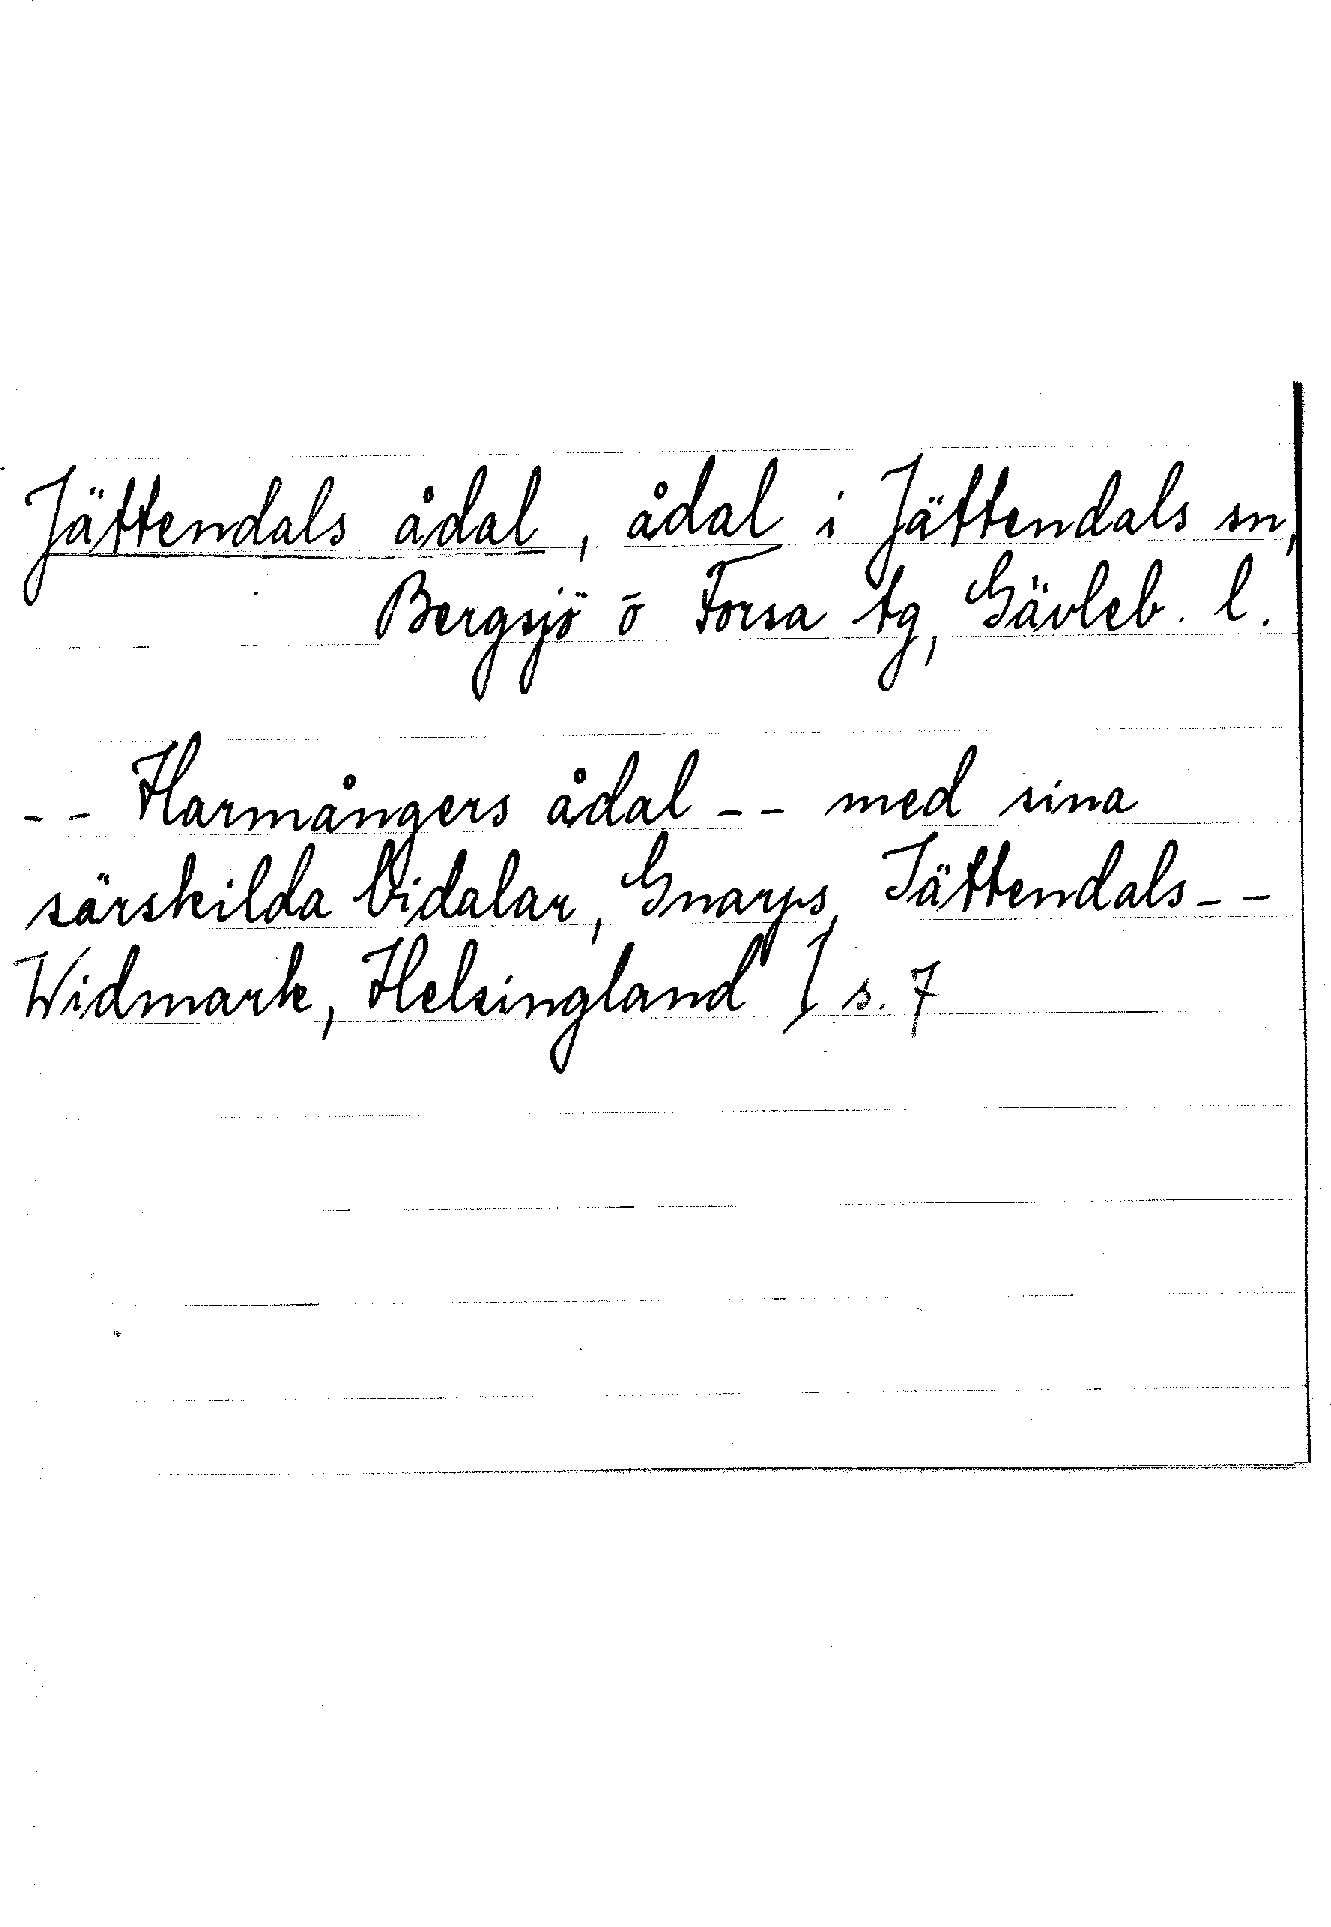 Jättendals ådal, ådal i Jättendals sn,
Bergsjö o Forsa tg, Gävleb. l.
-- Harmångers ådal -- med sina
särskilda bidalar, Gnarps, Jättendals --
Widmark, Helsingland I s. 7